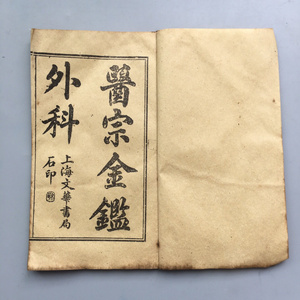 醫宗金鑑
外科
上海文華書局
石印